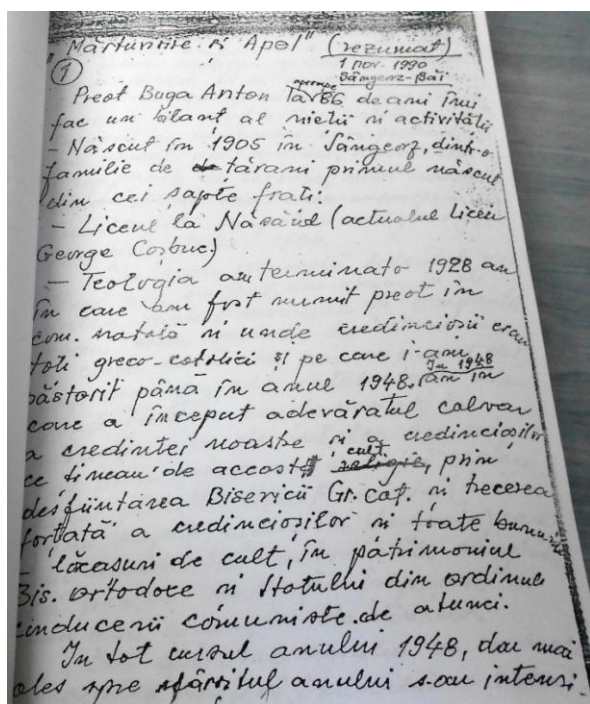 "Mărturisire și Apel" (rezumat)
1 nov. 1990
Sângeorz-Băi
1
Preot Buga Anton aproape 86 de ani îmi
fac un bilanț al vieții și activității
- Născut în 1905 în Sângeorz, dintr-o
familie de țărani primul născut
din cei șapte frați:
- Liceul la Năsăud (actualul Liceu
George Coșbuc)
- Teologia am terminat-o 1928 an
în care am fost numit preot în
com. natală și unde credincioșii erau
toți greco-catolici și pe care i-am
păstorit până în anul 1948. In 1948 an în
care a început adevăratul calvar
a credintei noastre și a credincioșilor
ce țineau de această cult religie, prin
desființarea Bisericii Gr. Cat. și trecerea
forțată a credincioșilor și toate
lăcașuri de cult, în patrimoniul
Bis. ortodoxe și Statului din ordinul
conducerii comuniste de atunci.
In tot cursul anului 1948, dar mai
ales spre sfârșitul anului s-au intensi-